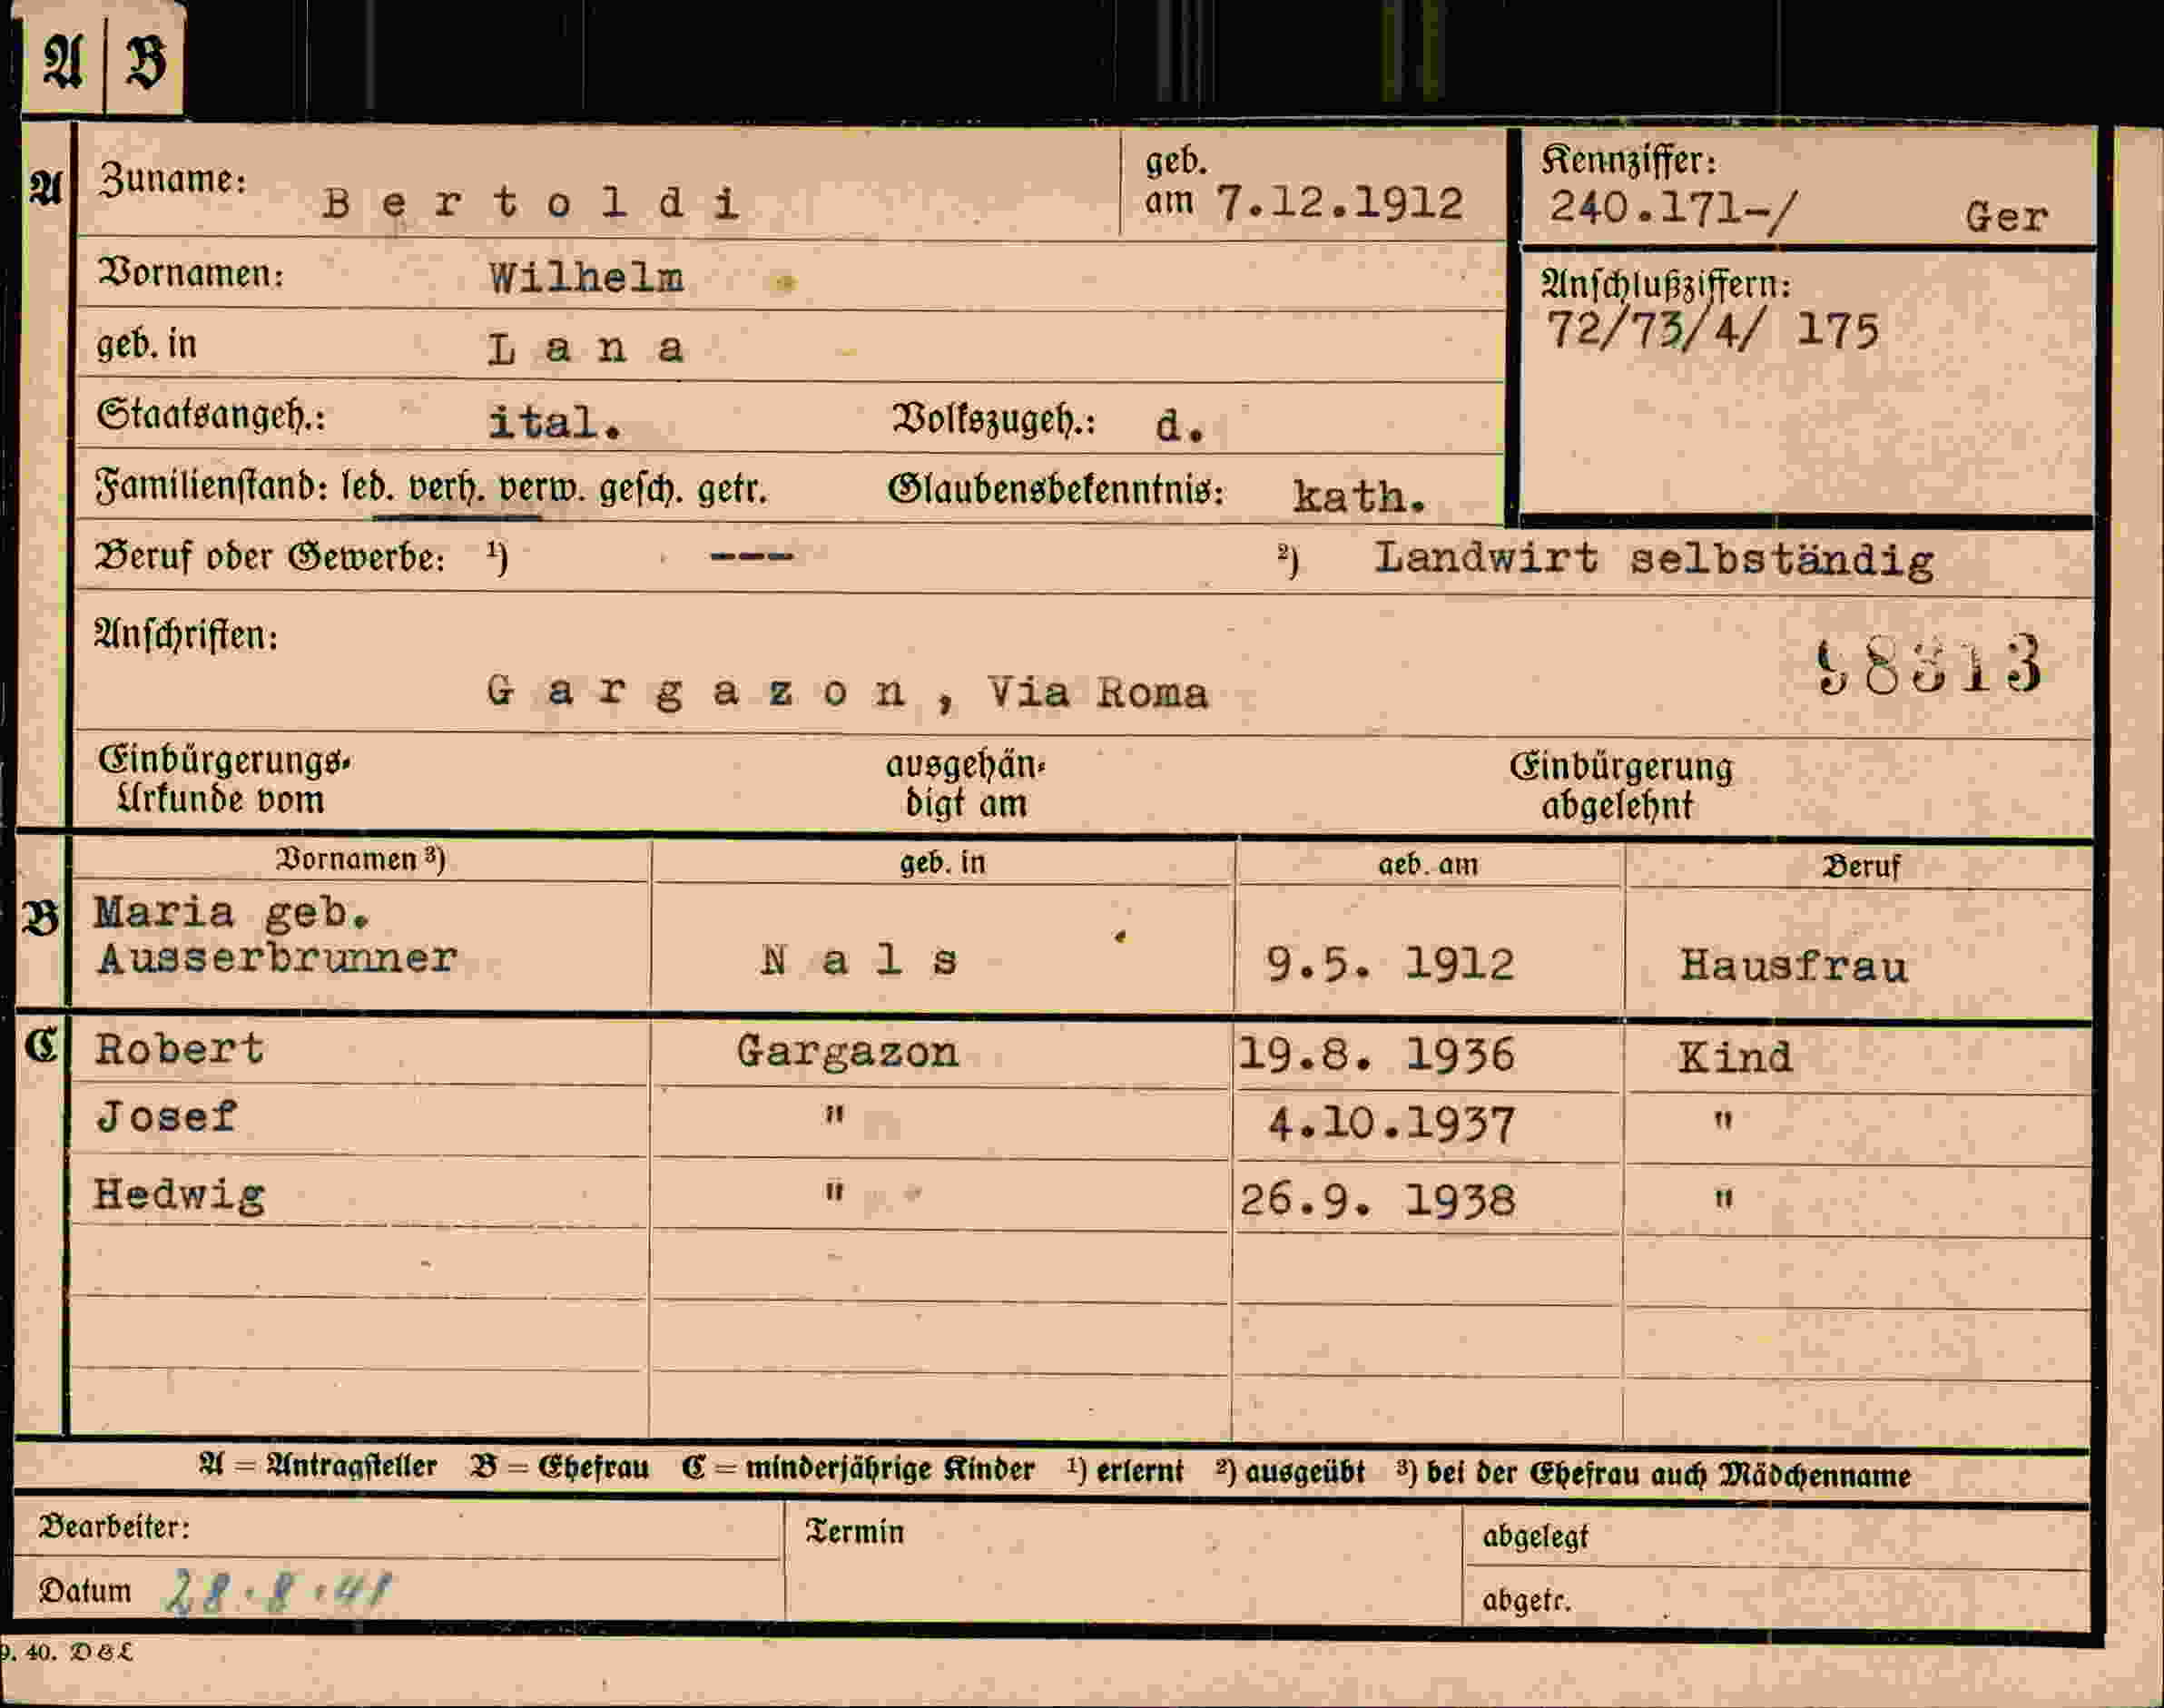 A B
A Zuname: Bertoldi geb. am 7.12.1912
Kennziffer: 240.171-/ Ger
Vornamen: Wilhelm
Anschlußziffern: 72/73/4/ 175
geb. in Lana
Staatsangeh.: ital. Volkszugeh.: d.
Familienstand: led. verh. verw. gesch. getr. Glaubensbekenntnis: kath.
Beruf oder Gewerbe: ¹) --- ²) Landwirt selbständig
Anschriften:
Gargazon, Via Roma
Einbürgerungs-Urkunde vom ausgehändigt am Einbürgerung abgelehnt
Vornamen ³) geb. in geb. am Beruf
B Maria geb.
Ausserbrunner Nals 9.5. 1912 Hausfrau
C Robert Gargazon 19.8. 1936 Kind
Josef " 4.10.1937 "
Hedwig " 26.9. 1938 "
A = Antragsteller B = Ehefrau C = minderjährige Kinder ¹) erlernt ²) ausgeübt ³) bei der Ehefrau auch Mädchenname
Bearbeiter: Termin abgelegt
Datum 28.8.41 abgetr.
9. 40. D&L